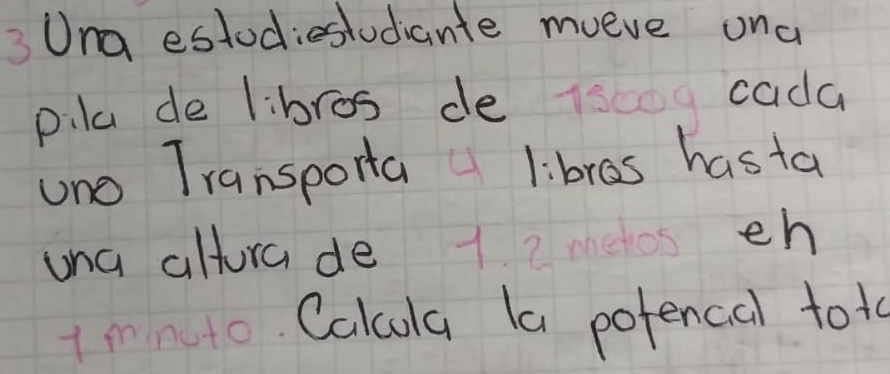 3 Una estudiestudiante mueve una
pila de libros de 1500g cada
uno Transporta 4 libros hasta
una altura de 1.2 metos en
1 minuto. Calcula la potencial tota